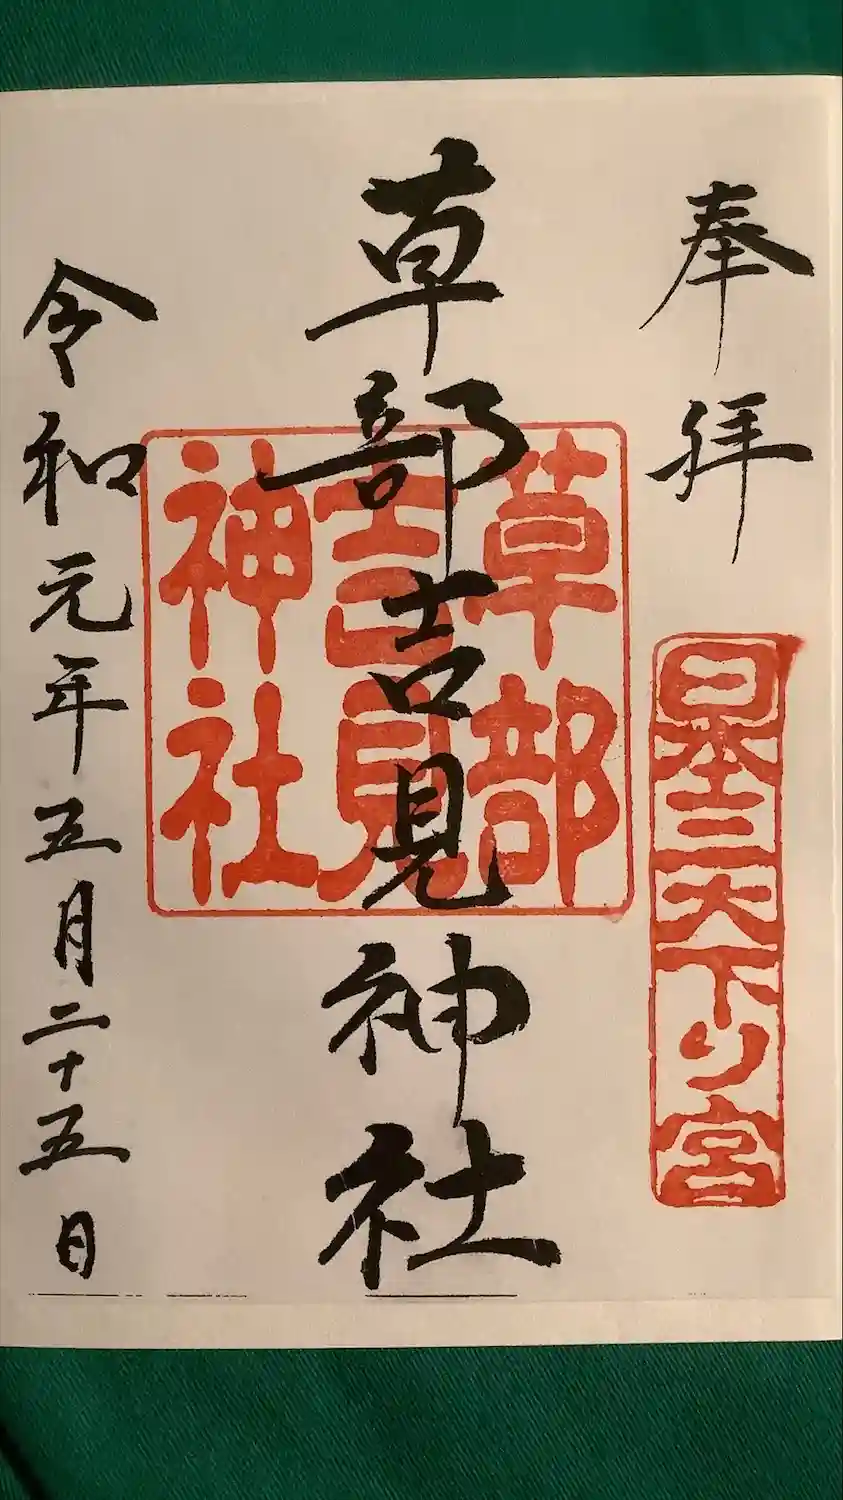 奉拝
日本三大下り宮
草部吉見神社
草部
吉見
神社
令和元年五月二十五日